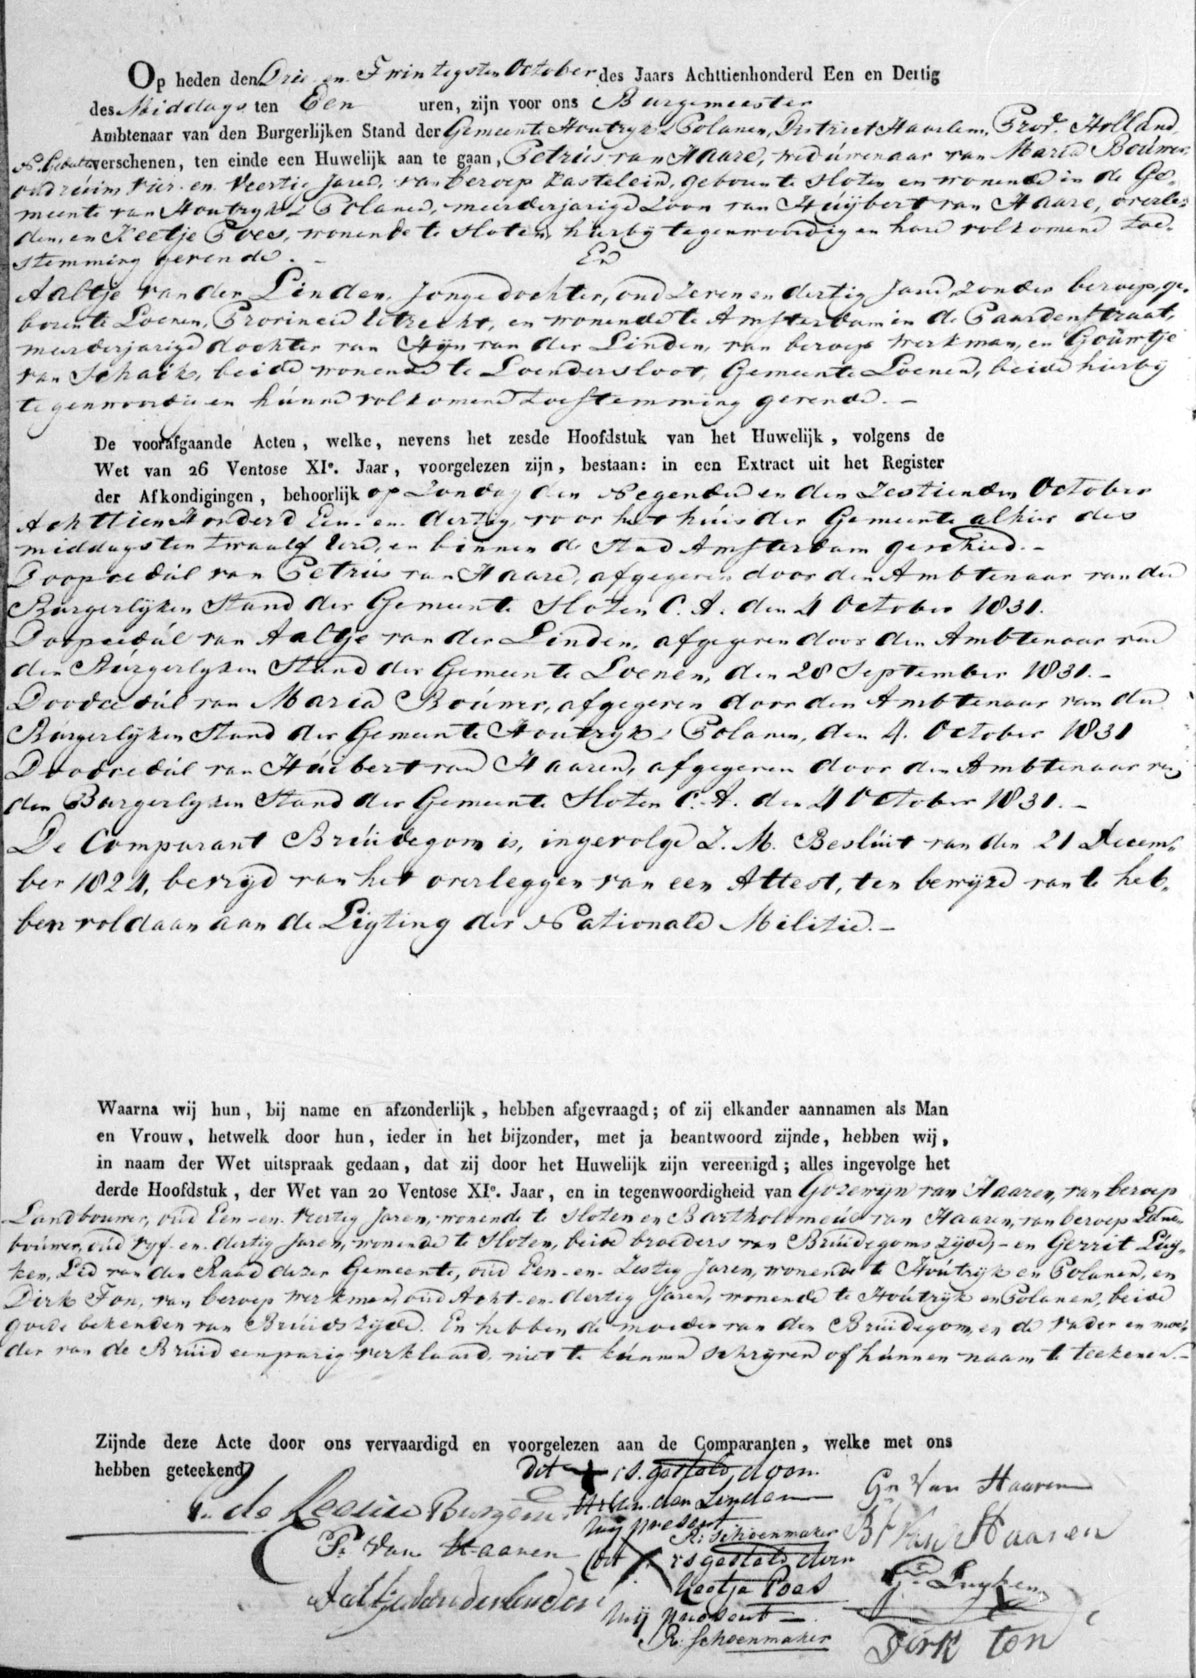 Op heden den Drie en Twintigsten October des Jaars Achttienhonderd Een en Dertig
des Middags ten Een uren, zijn voor ons Burgemeester
Ambtenaar van den Burgerlijken Stand der Gemeente Houtryk & Polanen, District Haarlem, Prov. Holland,
verschenen, ten einde een Huwelijk aan te gaan, Petrus van Haare, weduwenaar van Maria Bouwer,
oud ruim Vier- en Veertig Jaren, van beroep Kastelein, geboren te Sloten en wonende in de Ge-
meente van Houtryk & Polanen, meerderjarige Zoon van Huijbert van Haare, overle-
den, en Keetje Poes, wonende te Sloten, hierby tegenwoordig en hare volkomene toe-
stemming gevende. -
En
Aaltje van der Linden, Jonge dochter, oud Zeven en dertig Jaren, zonder beroep, ge-
boren te Loenen, Provincie Utrecht, en wonende te Amsterdam in de Paardenstraat,
meerderjarige dochter van Styn van der Linden, van beroep werkman, en Gouwtje
van Schaik, beide wonende te Loendersloot, Gemeente Loenen, beide hierby
tegenwoordig en hunne volkomene toestemming gevende. -
De voorafgaande Acten, welke, nevens het zesde Hoofdstuk van het Huwelijk, volgens de
Wet van 26 Ventose XIe. Jaar, voorgelezen zijn, bestaan: in een Extract uit het Register
der Afkondigingen, behoorlijk op Zondag den Negenden en den Zestienden October
Achttien Honderd Een- en- dertig, voor het huis der Gemeente alhier des
middags ten twaalf Ure, en binnen de Stad Amsterdam geschied. -
Doopcedul van Petrus van Haare, afgegeven door den Ambtenaar van den
Burgerlyken Stand der Gemeente Sloten C. A. den 4 October 1831.
Doopcedul van Aaltje van der Linden, afgegeven door den Ambtenaar van
den Burgerlyken Stand der Gemeente Loenen, den 28 September 1831. -
Doodcedul van Maria Bouwer, afgegeven door den Ambtenaar van den
Burgerlyken Stand der Gemeente Houtryk & Polanen, den 4. October 1831
Doodcedul van Huibert van Haaren, afgegeven door den Ambtenaar van
den Burgerlyken Stand der Gemeente Sloten C. A. den 4 October 1831. -
De Comparant Bruidegom is, ingevolge Z. M. Besluit van den 21 Decem-
ber 1824, bevryd van het overleggen van een Attest, ten bewyze van te heb-
ben voldaan aan de Ligting der Nationale Militie. -
Waarna wij hun, bij name en afzonderlijk, hebben afgevraagd; of zij elkander aannamen als Man
en Vrouw, hetwelk door hun, ieder in het bijzonder, met ja beantwoord zijnde, hebben wij,
in naam der Wet uitspraak gedaan, dat zij door het Huwelijk zijn vereenigd; alles ingevolge het
derde Hoofdstuk, der Wet van 20 Ventose XIe. Jaar, en in tegenwoordigheid van Gozewyn van Haaren, van beroep
Landbouwer, oud Een- en- Veertig Jaren, wonende te Sloten en Bartholomeus van Haaren, van beroep Land-
bouwer, oud vyf- en- dertig Jaren, wonende te Sloten, beide broeders van Bruidegoms zijde, - en Gerrit Luy-
ken, Lid van den Raad dezer Gemeente, oud Een- en- Zestig Jaren, wonende te Houtrijk en Polanen, en
Dirk Ton, van beroep werkman, oud Acht- en- dertig Jaren, wonende te Houtrijk en Polanen, beide
goede bekenden van Bruids zijde. En hebben de moeder van den Bruidegom, en de vader en moe-
der van de Bruid eenparig verklaard, niet te kunnen schryven of hunnen naam te teekenen. -
Zijnde deze Acte door ons vervaardigd en voorgelezen aan de Comparanten, welke met ons
hebben geteekend
dit + is gesteld door
van der Lynden
Gn Van Haaren
de Leeuw Burgem
mij present
R. Schoenmaker
Bt Van Haaren
P. van Haaren
dit X is gesteld door
Keetje Poes
G. Luyken
Aaltje van der Linden
mij present
R. Schoenmaker
Dirk ton